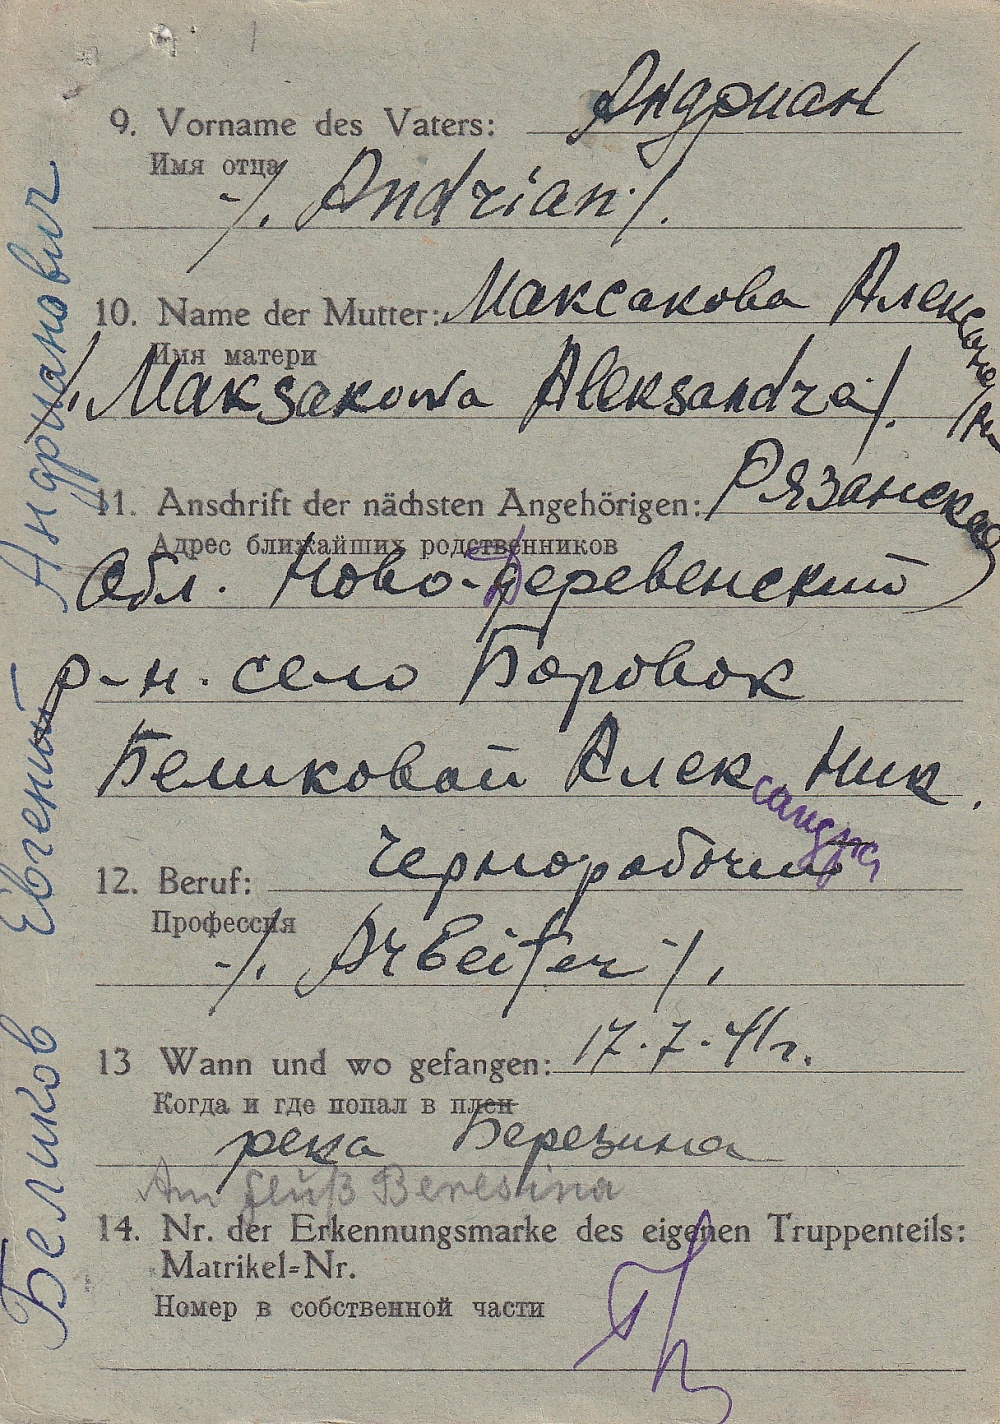 9. Vorname des Vaters: Андриан
Имя отца
-/. Andrian ./.
10. Name der Mutter: Максакова Александра
Имя матери
./. Maksakowa Aleksandra ./.
11. Anschrift der nächsten Angehörigen: Рязанская
Адрес ближайших родственников
обл. Ново-Деревенский
р-н. село Боровок
Беликовой Александра Ник.
12. Beruf: Чернорабочий
Профессия
-/. Arbeiter -/.
13 Wann und wo gefangen: 17.7.41 г.
Когда и где попал в плен
река Березина
Am Fluß Beresina
14. Nr. der Erkennungsmarke des eigenen Truppenteils:
Matrikel=Nr.
Номер в собственной части
Беликов Евгений Андрианович